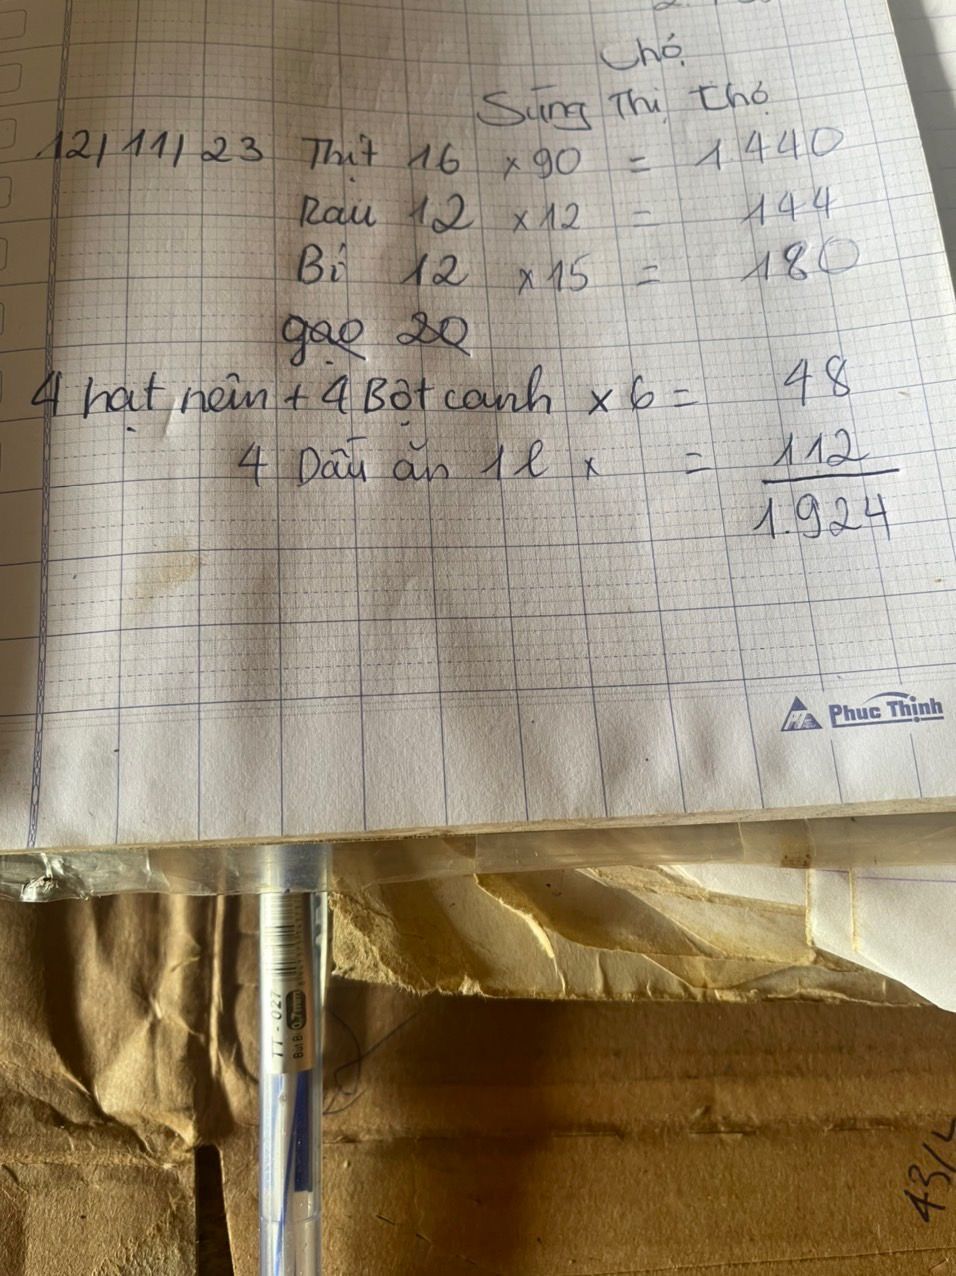 Chợ
Sùng Thị Chớ
12/11/23 Thịt 16 x 90 = 1.440
Rau 12 x 12 = 144
Bí 12 x 15 = 180
gạo 20
4 hạt nêm + 4 Bột canh x 6 = 48
4 Dầu ăn 1l x = 112
1.924
Phuc Thịnh
TT-027
But B 0.7mm
43/